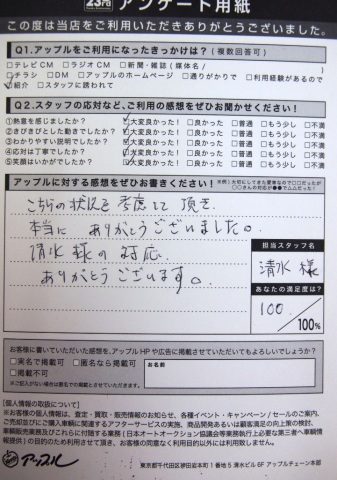 アンケート用紙
この度は当店をご利用いただきありがとうございました。
Q1.アップルをご利用になったきっかけは？(複数回答可)
□テレビCM □ラジオCM □新聞・雑誌(媒体名 )
□チラシ □DM □アップルのホームページ □通りがかりで □利用経験があるので
☑紹介 □スタッフに誘われて
Q2.スタッフの応対など、ご利用の感想をぜひお聞かせください！
①熱意を感じましたか？ ☑大変良かった！ □良かった □普通 □もう少し □不満
②きびきびとした動きでしたか？ ☑大変良かった！ □良かった □普通 □もう少し □不満
③わかりやすい説明でしたか？ ☑大変良かった！ □良かった □普通 □もう少し □不満
④応対は丁寧でしたか？ ☑大変良かった！ □良かった □普通 □もう少し □不満
⑤笑顔はいかがでしたか？ ☑大変良かった！ □良かった □普通 □もう少し □不満
アップルに対する感想をぜひお書きください！
こちらの状況を考慮して頂き
本当に ありがとうございました。
清水様の対応
ありがとうございます。
担当スタッフ名
清水 様
あなたの満足度は？
100
100%
お客様に書いていただいた感想を、アップルHPや広告に掲載させていただいてもよろしいでしょうか？
□実名で掲載可 □匿名なら掲載可
□掲載不可
※ご記入がない場合は匿名での掲載とさせていただきます。
お名前
<個人情報の取扱について>
※お客様の個人情報は、査定・買取・販売情報のお知らせ、各種イベント・キャンペーン/セールのご案内、
ご売却並びにご購入車両に関連するアフターサービスの実施、商品開発あるいは顧客満足の向上策の検討、
車両販売業務及びこれらに付随する業務(日本オートオークション協議会等業務執行上必要な第三者へ車輌情
報提供)の目的のため利用させて頂き、お客様の同意なく利用目的以外には利用致しません。
アップル
東京都千代田区神田岩本町1番地5 清水ビル6F アップルチェーン本部